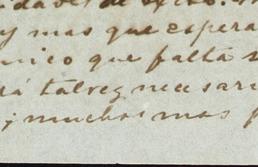 dades de exito.
y mas que espera
nico que falta
rá talvez necesari
; muchos mas